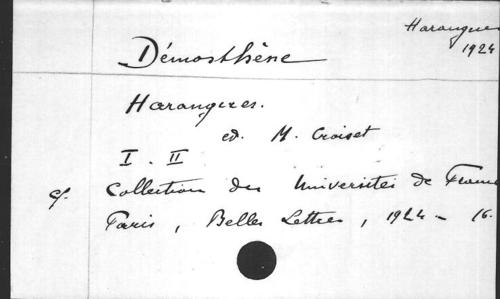 Harangues
1924
Démosthène
Harangues.
ed. M. Croiset
I. II
cf. Collection des Universités de France
Paris, Belles Lettres, 1924 - 16.